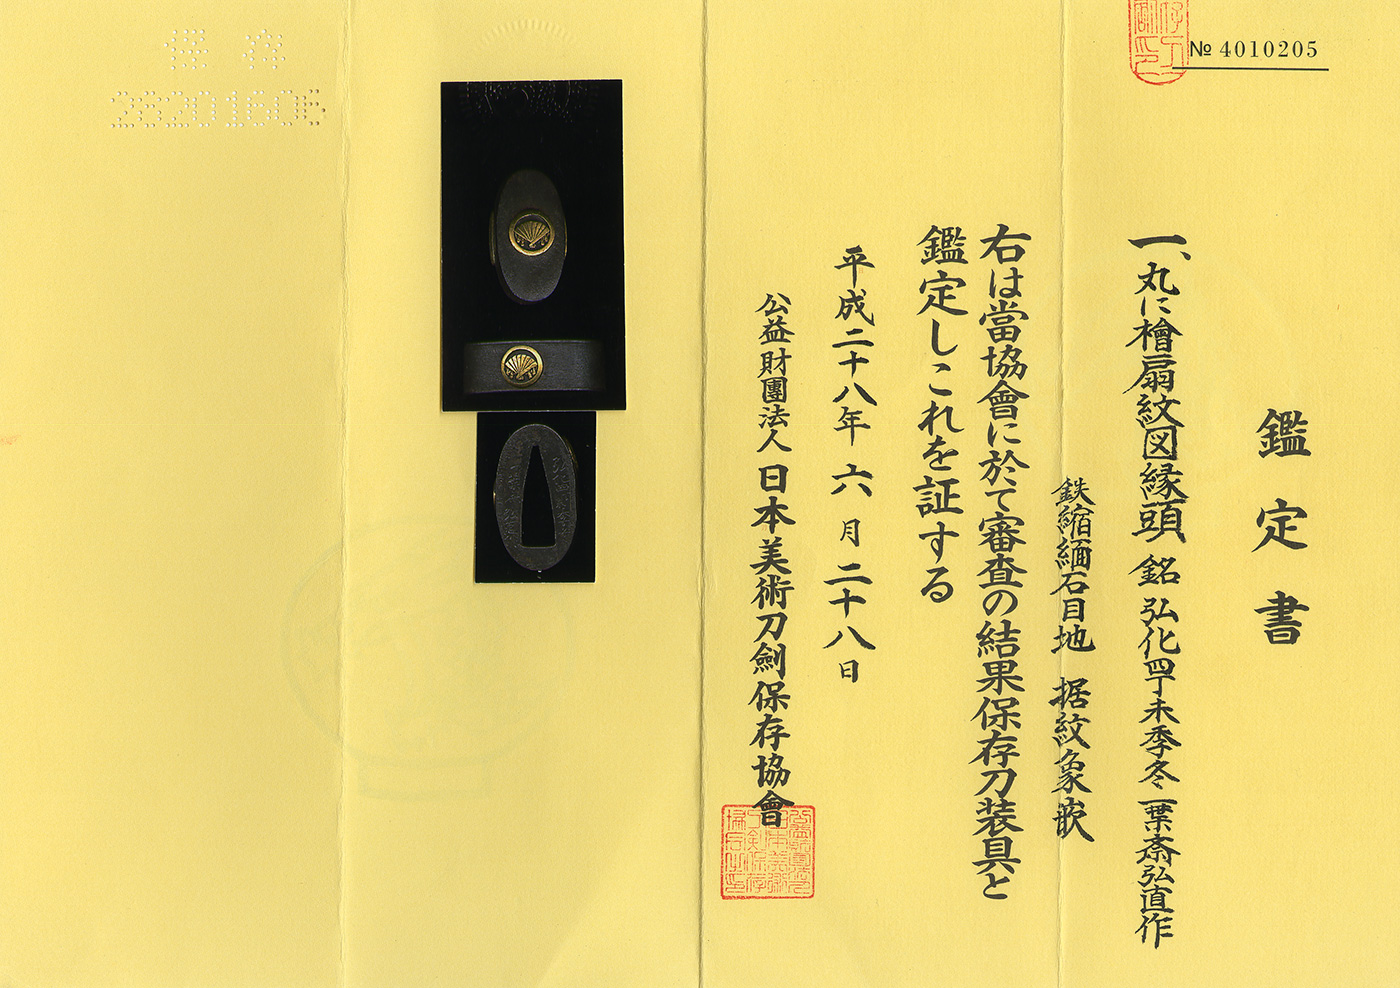 № 4010205
鑑定書
一、丸に檜扇紋図縁頭 銘 弘化四丁未季冬 一葉斎弘直作
鉄縮緬石目地 据紋象嵌
右は當協會に於て審査の結果保存刀装具と
鑑定しこれを証する
平成二十八年六月二十八日
公益財團法人日本美術刀劍保存協會
保存
28201606